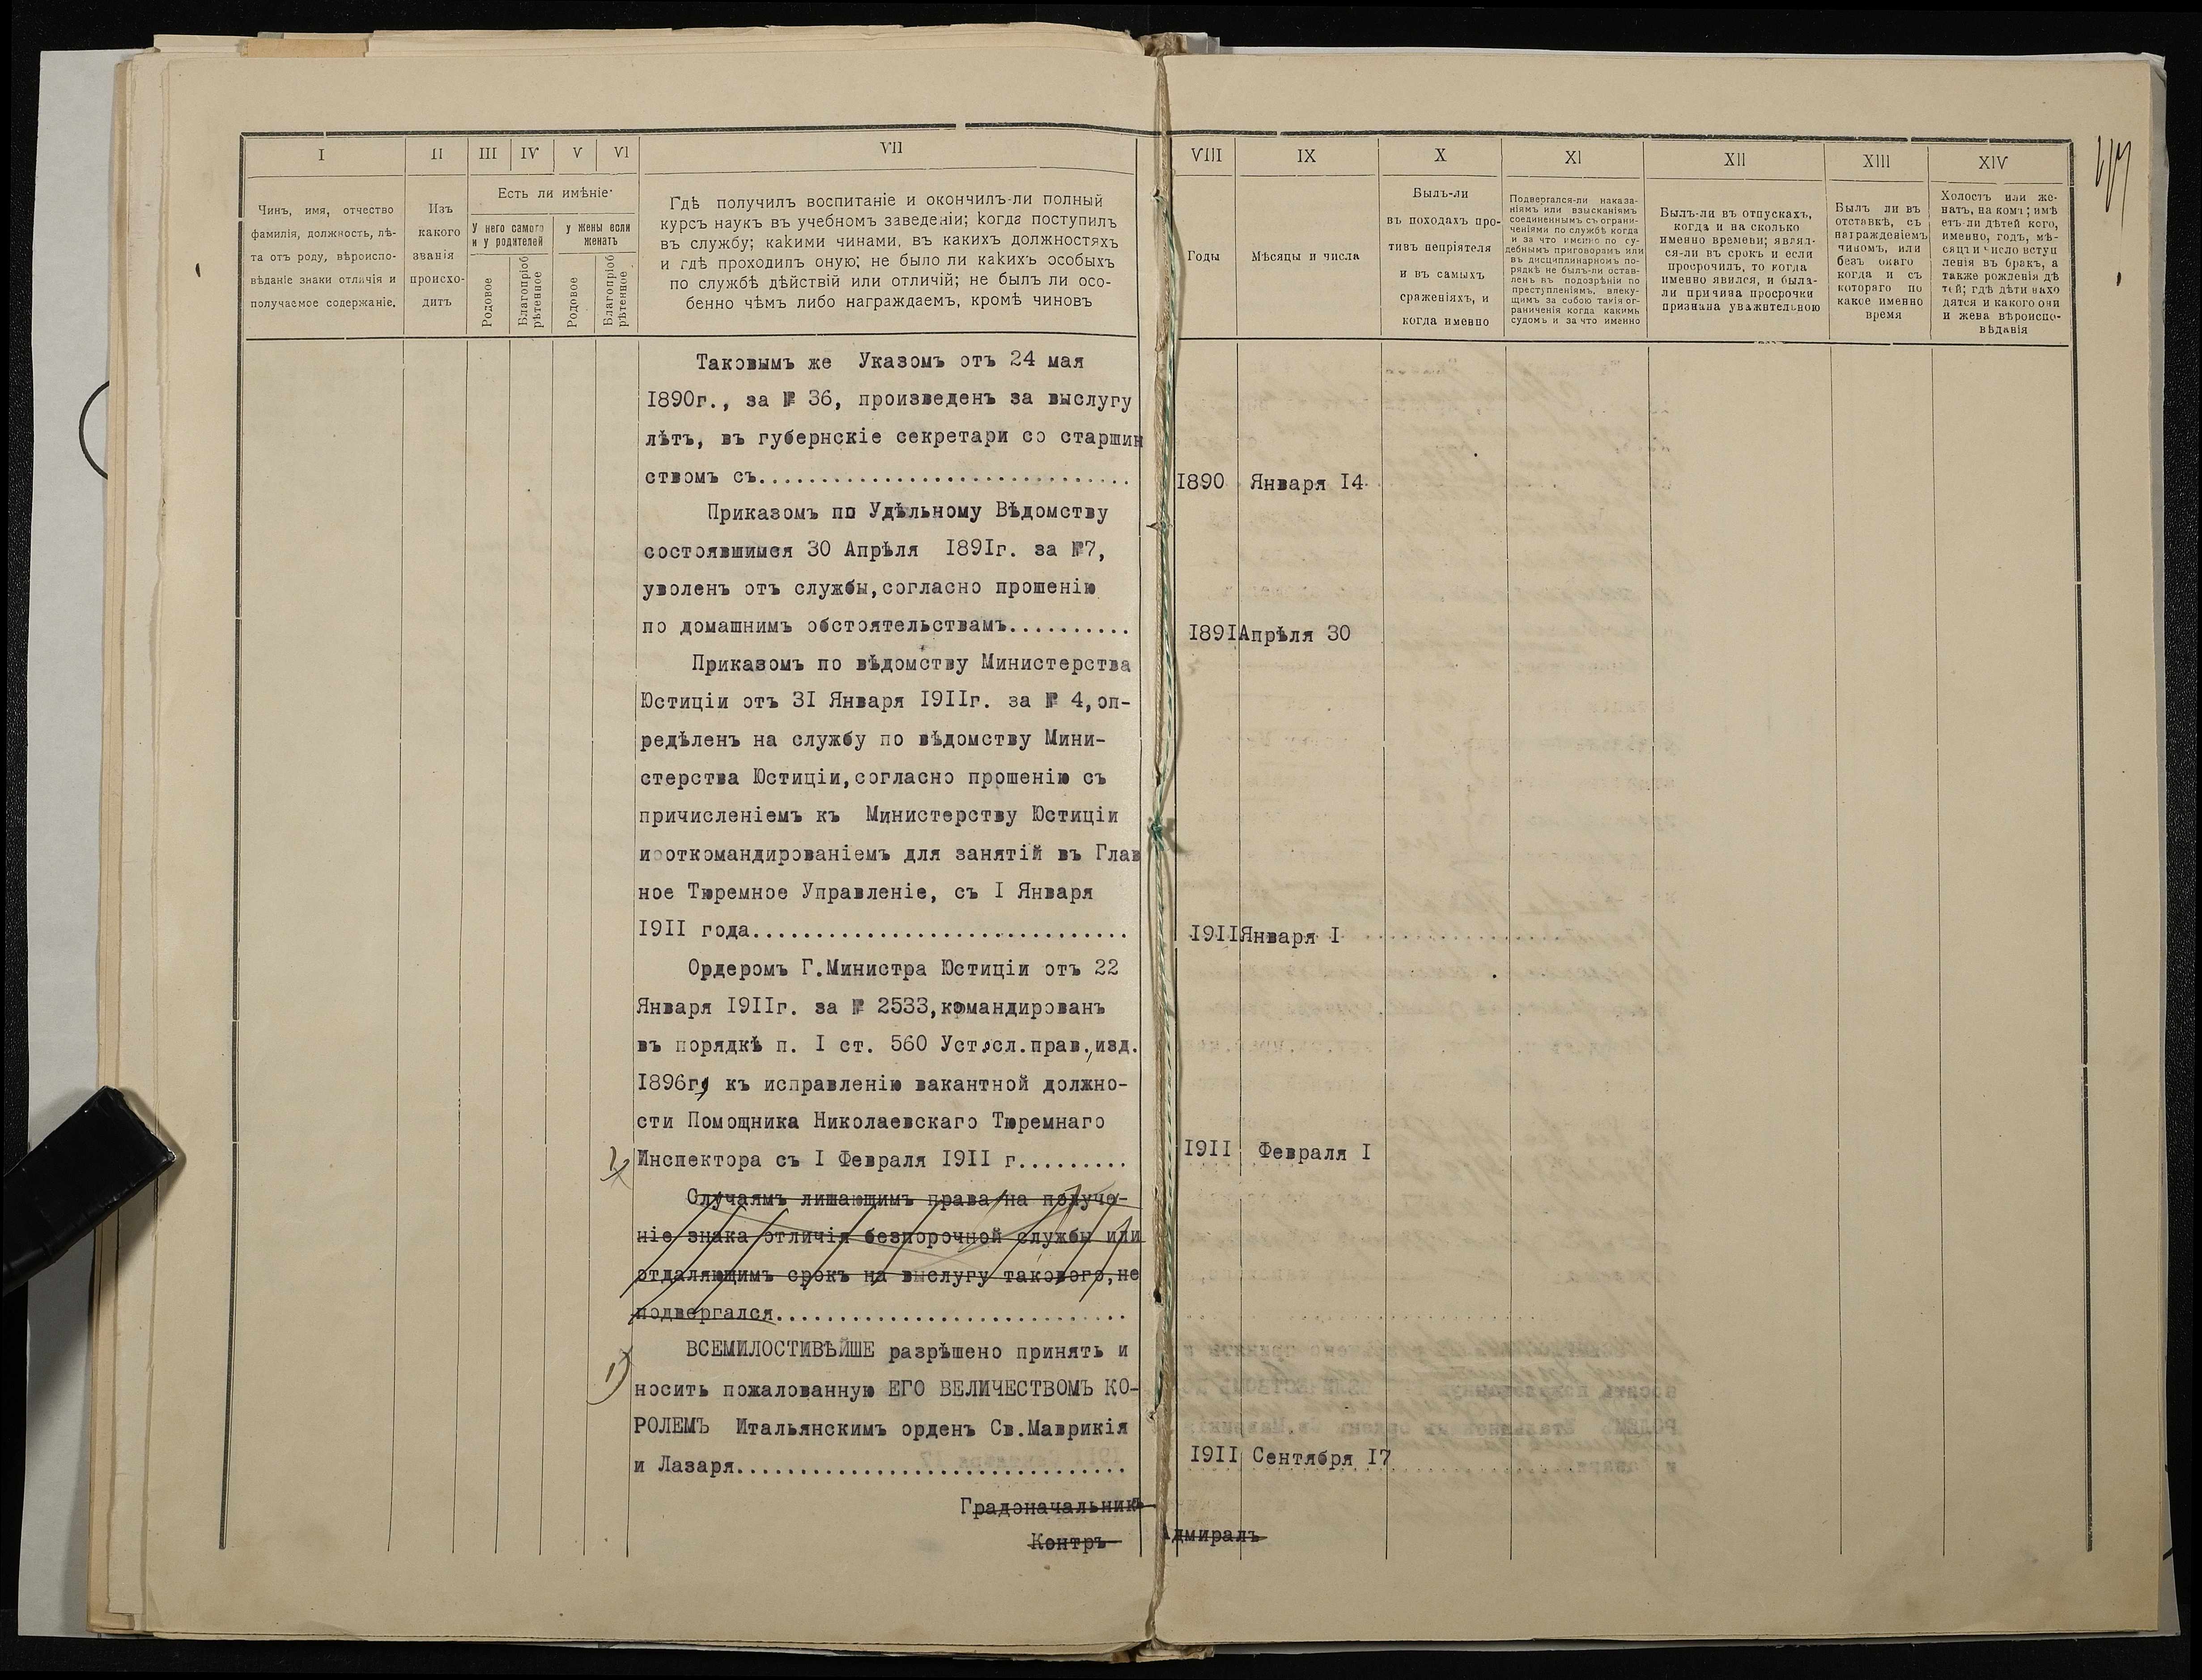 I
II
III
IV
V
VI
VII
VIII
IX
X
XI
XII
XIII
XIV
Чинъ, имя, отчество
фамилія, должность, лѣ-
та отъ роду, вѣроиспо-
вѣданіе знаки отличія и
получаемое содержаніе.
Изъ
какого
званія
происхо-
дитъ
Есть ли имѣніе
У него самого
и у родителей
у жены если
женатъ
Родовое
Благопріоб
рѣтенное
Родовое
Благопріоб
рѣтенное
Гдѣ получилъ воспитаніе и окончилъ-ли полный
курсъ наукъ въ учебномъ заведеніи; когда поступилъ
въ службу; какими чинами, въ какихъ должностяхъ
и гдѣ проходилъ оную; не было ли какихъ особыхъ
по службѣ дѣйствій или отличій; не былъ ли осо-
бенно чѣмъ либо награждаемъ, кромѣ чиновъ
Годы
Мѣсяцы и числа
Былъ-ли
въ походахъ про-
тивъ непріятеля
и въ самыхъ
сраженіяхъ, и
когда именно
Подвергался-ли наказа-
ніямъ или взысканіямъ
соединеннымъ съ ограни-
ченіями по службѣ когда
и за что именно по су-
дебнымъ приговорамъ или
въ дисциплинарномъ по-
рядкѣ не былъ-ли остав-
ленъ въ подозрѣніи по
преступленіямъ, влеку-
щимъ за собою такія ог-
раниченія когда какимъ
судомъ и за что именно
Былъ-ли въ отпускахъ,
когда и на сколько
именно времени; являл-
ся-ли въ срокъ и если
просрочилъ, то когда
именно явился, и была-
ли причина просрочки
признана уважительною
Былъ ли въ
отставкѣ, съ
награжденіемъ
чиномъ, или
безъ онаго
когда и съ
котораго по
какое именно
время
Холостъ или же-
натъ, на комъ; имѣ
етъ-ли дѣтей кого,
именно, годъ, мѣ-
сяцъ и число вступ
ленія въ бракъ, а
также рожденія дѣ
тей; гдѣ дѣти нахо
дятся и какого они
и жена вѣроиспо-
вѣданія
Таковымъ же Указомъ отъ 24 мая
1890г., за № 36, произведенъ за выслугу
лѣтъ, въ губернскіе секретари со старшин
ствомъ съ.............................. 1890 Января 14
Приказомъ по Удѣльному Вѣдомству
состоявшимся 30 Апрѣля 1891г. за №7,
уволенъ отъ службы,согласно прошенію
по домашнимъ обстоятельствамъ.......... 1891 Апрѣля 30
Приказомъ по вѣдомству Министерства
Юстиціи отъ 31 Января 1911г. за № 4,оп-
редѣленъ на службу по вѣдомству Мини-
стерства Юстиціи,согласно прошенію съ
причисленіемъ къ Министерству Юстиціи
и откомандированіемъ для занятій въ Глав
ное Тюремное Управленіе, съ I Января
1911 года.............................. 1911 Января I
Ордеромъ Г.Министра Юстиціи отъ 22
Января 1911г. за № 2533,командированъ
въ порядкѣ п. I ст. 560 Уст.сл.прав.,изд.
1896г, къ исправленію вакантной должно-
сти Помощника Николаевскаго Тюремнаго
Инспектора съ I Февраля 1911 г......... 1911 Февраля I
Случаямъ лишающимъ права на получе-
ніе знака отличія безпорочной службы или
отдаляющимъ срокъ на выслугу такового,не
подвергался............................
1)
ВСЕМИЛОСТИВѢЙШЕ разрѣшено принять и
носить пожалованную ЕГО ВЕЛИЧЕСТВОМЪ КО-
РОЛЕМЪ Итальянскимъ орденъ Св.Маврикія
и Лазаря............................... 1911 Сентября 17
Градоначальникъ
Контръ Адмиралъ